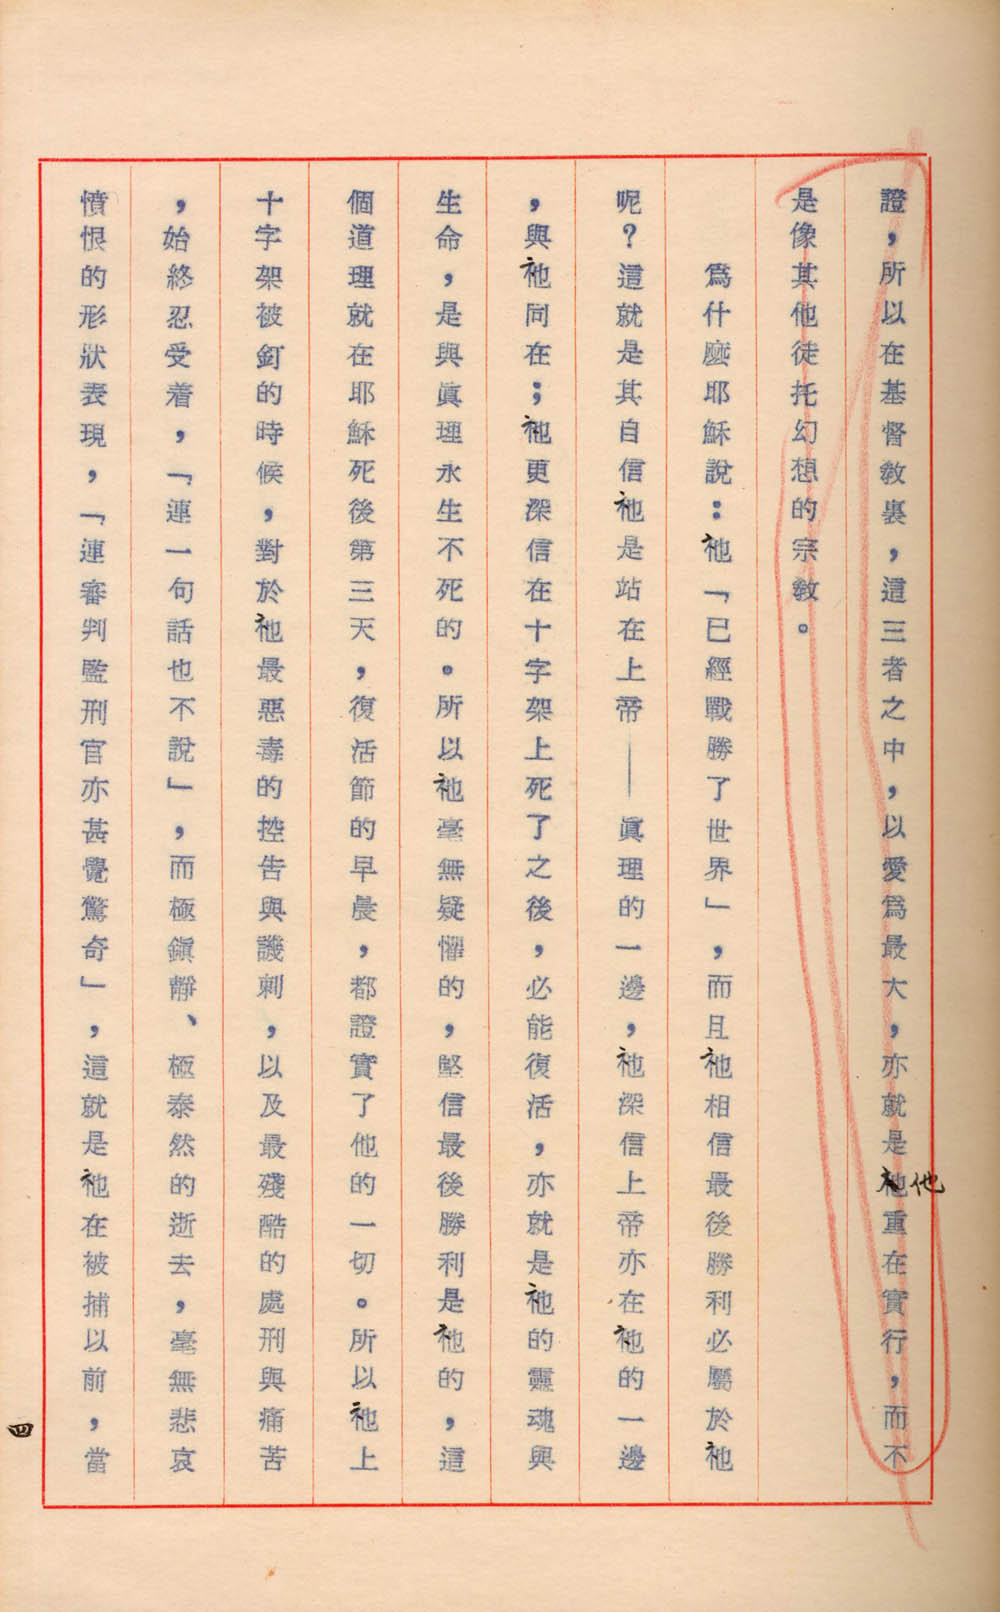 證，所以在基督教裏，這三者之中，以愛爲最大，亦就是他重在實行，而不
他
是像其他徒托幻想的宗教。
爲什麼耶穌說：祂「已經戰勝了世界」，而且祂相信最後勝利必屬於祂
呢？這就是其自信祂是站在上帝——眞理的一邊，祂深信上帝亦在祂的一邊
，與祂同在；祂更深信在十字架上死了之後，必能復活，亦就是祂的靈魂與
生命，是與眞理永生不死的。所以祂毫無疑懼的，堅信最後勝利是祂的，這
個道理就在耶穌死後第三天，復活節的早晨，都證實了他的一切。所以祂上
十字架被釘的時候，對於祂最惡毒的控告與譏刺，以及最殘酷的處刑與痛苦
，始終忍受着，「連一句話也不說」，而極鎭靜、極泰然的逝去，毫無悲哀
憤恨的形狀表現，「連審判監刑官亦甚覺驚奇」，這就是祂在被捕以前，當
四